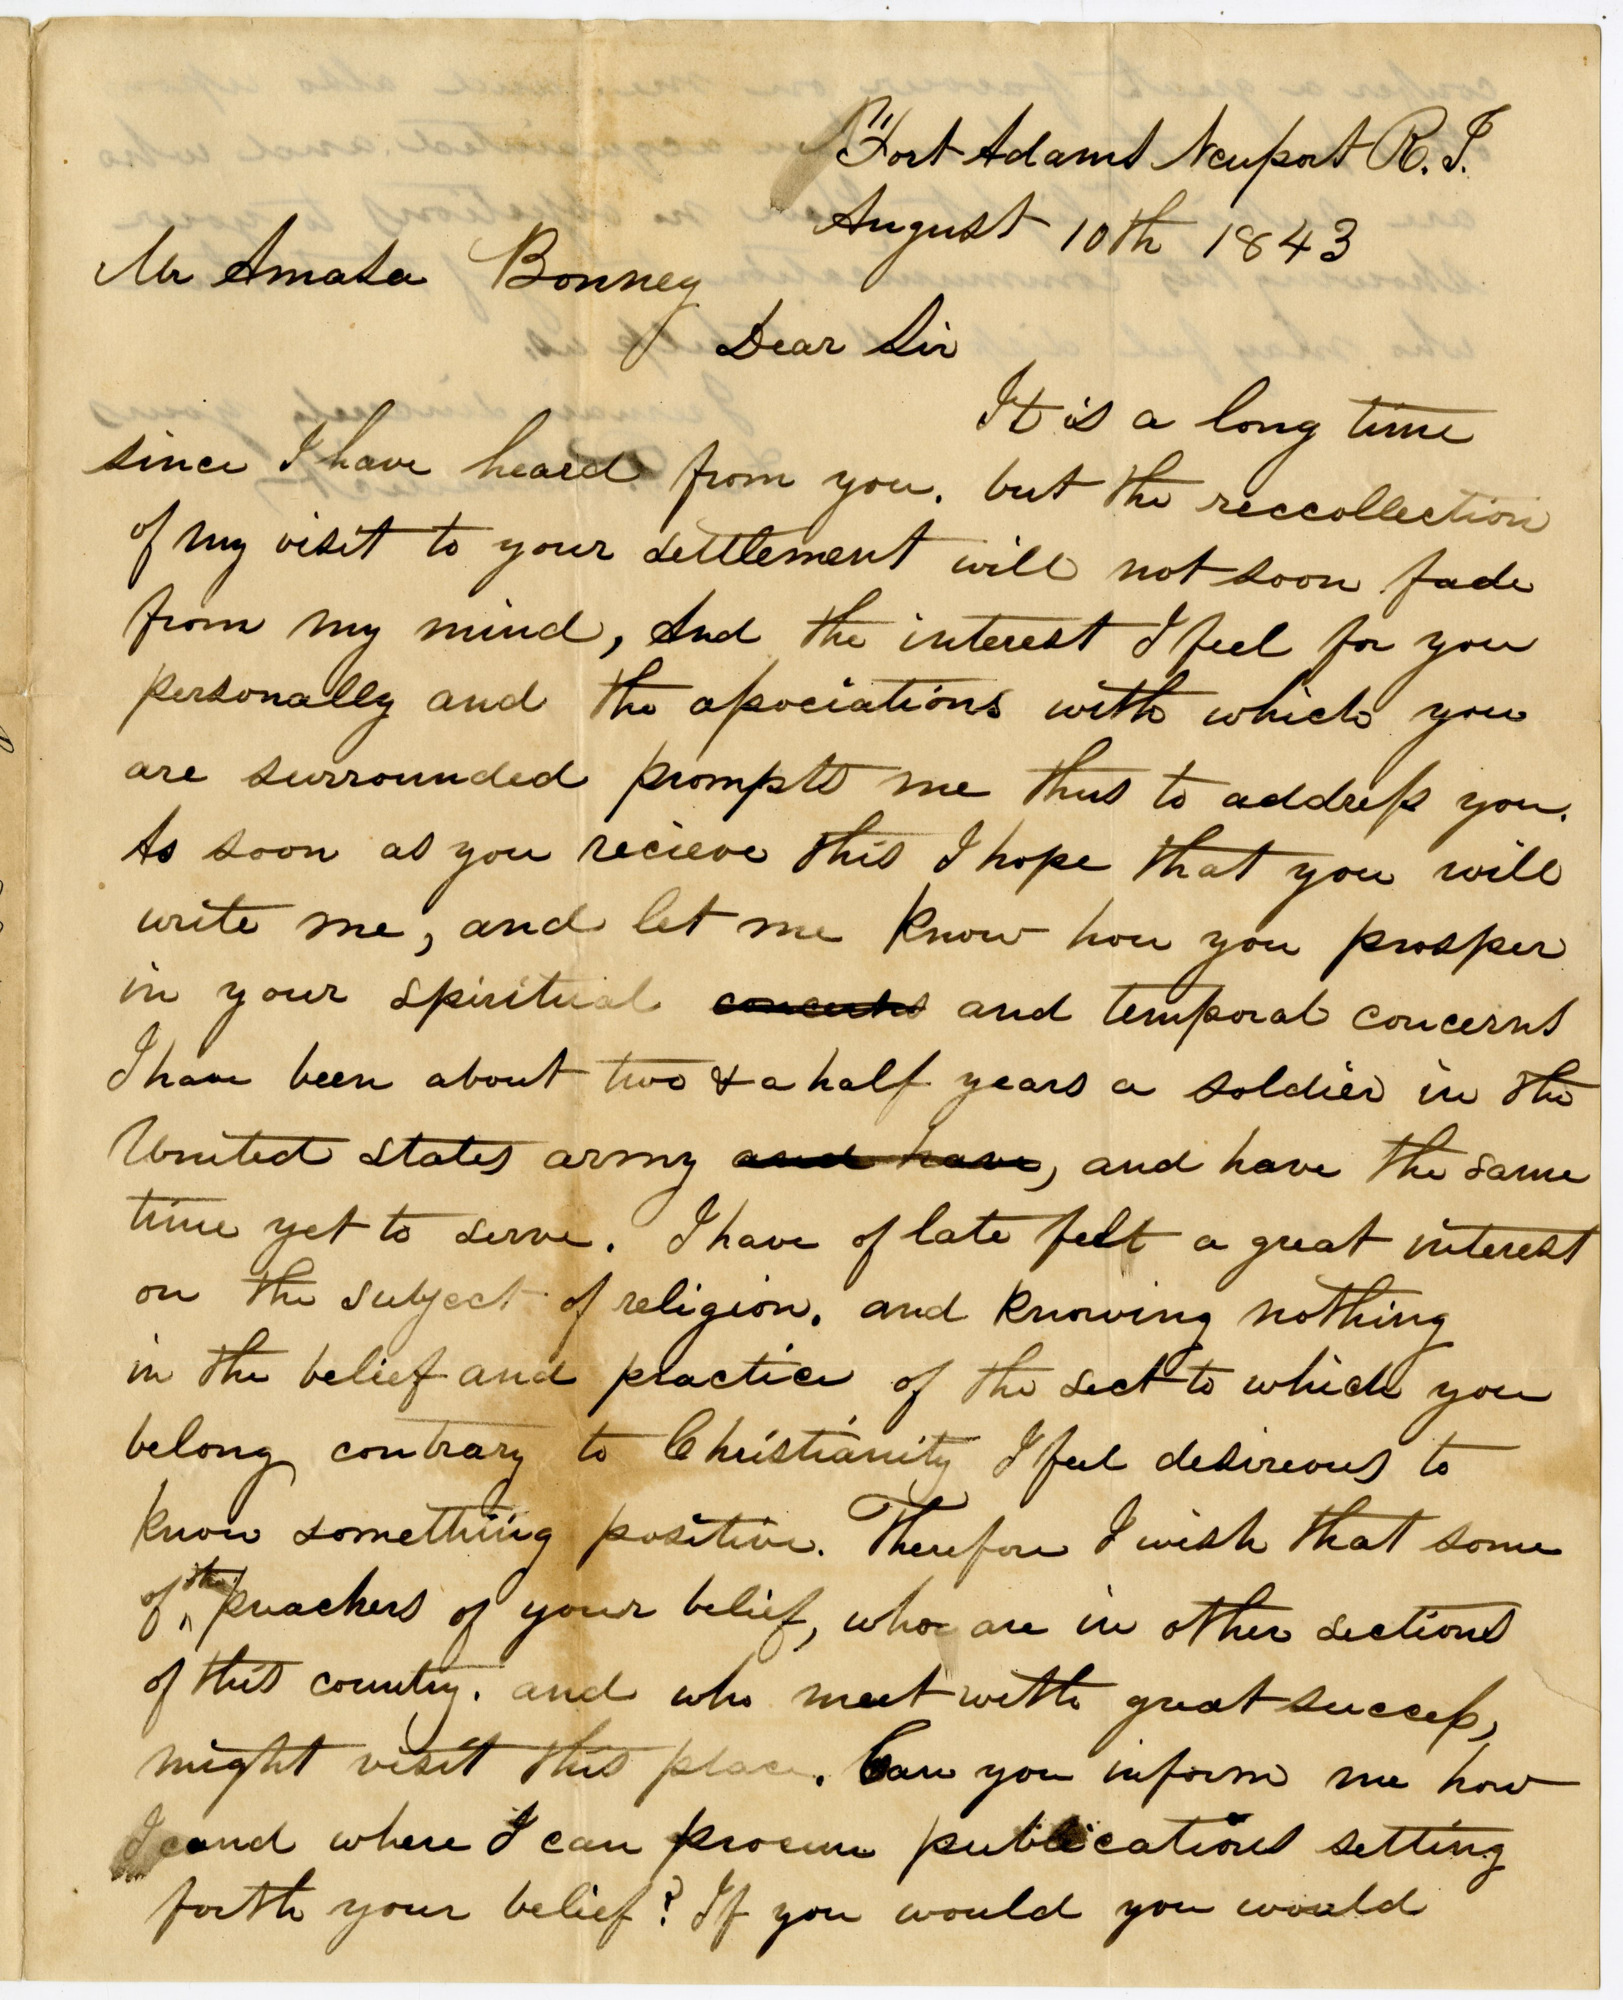 Fort Adams Newport R. I.
August 10th 1843
Mr Amasa Bonney
Dear Sir
It is a long time
since I have heard from you. but the reccollection
of my visit to your settlement will not soon fade
from my mind, And the interest I feel for you
personally and the associations with which you
are surrounded prompts me thus to address you.
As soon as you recieve this I hope that you will
write me, and let me know how you prosper
in your spiritual concerns and temporal concerns
I have been about two & a half years a soldier in the
United States army and have, and have the same
time yet to serve. I have of late felt a great interest
on the subject of religion. and knowing nothing
in the belief and practice of the sect to which you
belong contrary to Christianity I feel desireous to
know something positive. Therefore I wish that some
of the preachers of your belief, who are in other sections
of this country. and who meet with great success,
might visit this place. Can you inform me how
and where I can procure publications setting
forth your belief? If you would you would